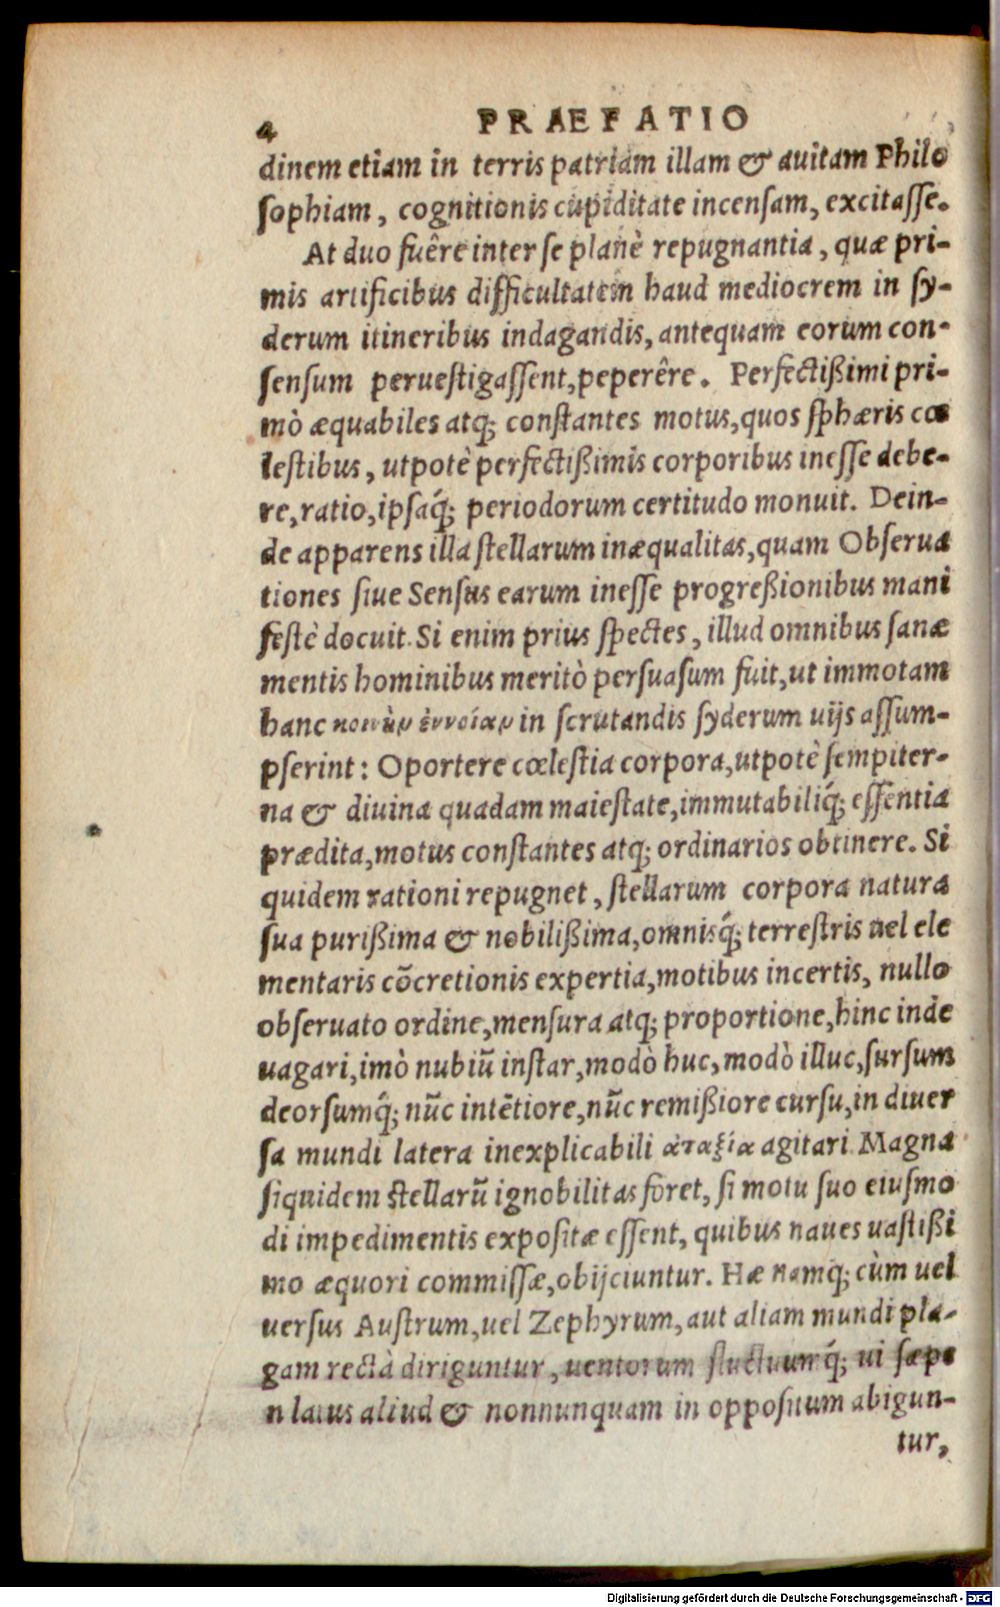 4 PRAEFATIO
dinem etiam in terris patriam illam & auitam Philo
sophiam, cognitionis cupiditate incensam, excitasse.
At duo fuêre inter se planè repugnantia, quæ pri-
mis artificibus difficultatem haud mediocrem in sy-
derum itineribus indagandis, antequam eorum con-
sensum peruestigassent, peperêre. Perfectißimi pri-
mò æquabiles atq; constantes motus, quos sphæris cœ
lestibus, utpotè perfectißimis corporibus inesse debe-
re, ratio, ipsaq́; periodorum certitudo monuit. Dein-
de apparens illa stellarum inæqualitas, quam Obserua
tiones siue Sensus earum inesse progreßionibus mani
festè docuit. Si enim prius spectes, illud omnibus sanæ
mentis hominibus meritò persuasum fuit, ut immotam
hanc κοινὴν ἔννοίαν in scrutandis syderum uijs assum-
pserint: Oportere cœlestia corpora, utpotè sempiter-
na & diuina quadam maiestate, immutabiliq́; essentia
prædita, motus constantes atq; ordinarios obtinere. Si
quidem rationi repugnet, stellarum corpora natura
sua purißima & nobilißima, omnisq́; terrestris uel ele
mentaris cõcretionis expertia, motibus incertis, nullo
obseruato ordine, mensura atq; proportione, hinc inde
uagari, imò nubiũ instar, modò huc, modò illuc, sursum
deorsumq́; nũc intẽtiore, nũc remißiore cursu, in diuer
sa mundi latera inexplicabili ἀταξίᾳ agitari. Magna
siquidem stellarũ ignobilitas foret, si motu suo eiusmo
di impedimentis expositæ essent, quibus naues uastißi
mo æquori commissæ, obijciuntur. Hæ namq́; cùm uel
uersus Austrum, uel Zephyrum, aut aliam mundi pla-
gam rectà diriguntur, uentorum fluctuumq́; ui sæpe
n latus aliud & nonnunquam in oppositum abigun-
tur,
Digitalisierung gefördert durch die Deutsche Forschungsgemeinschaft - DFG